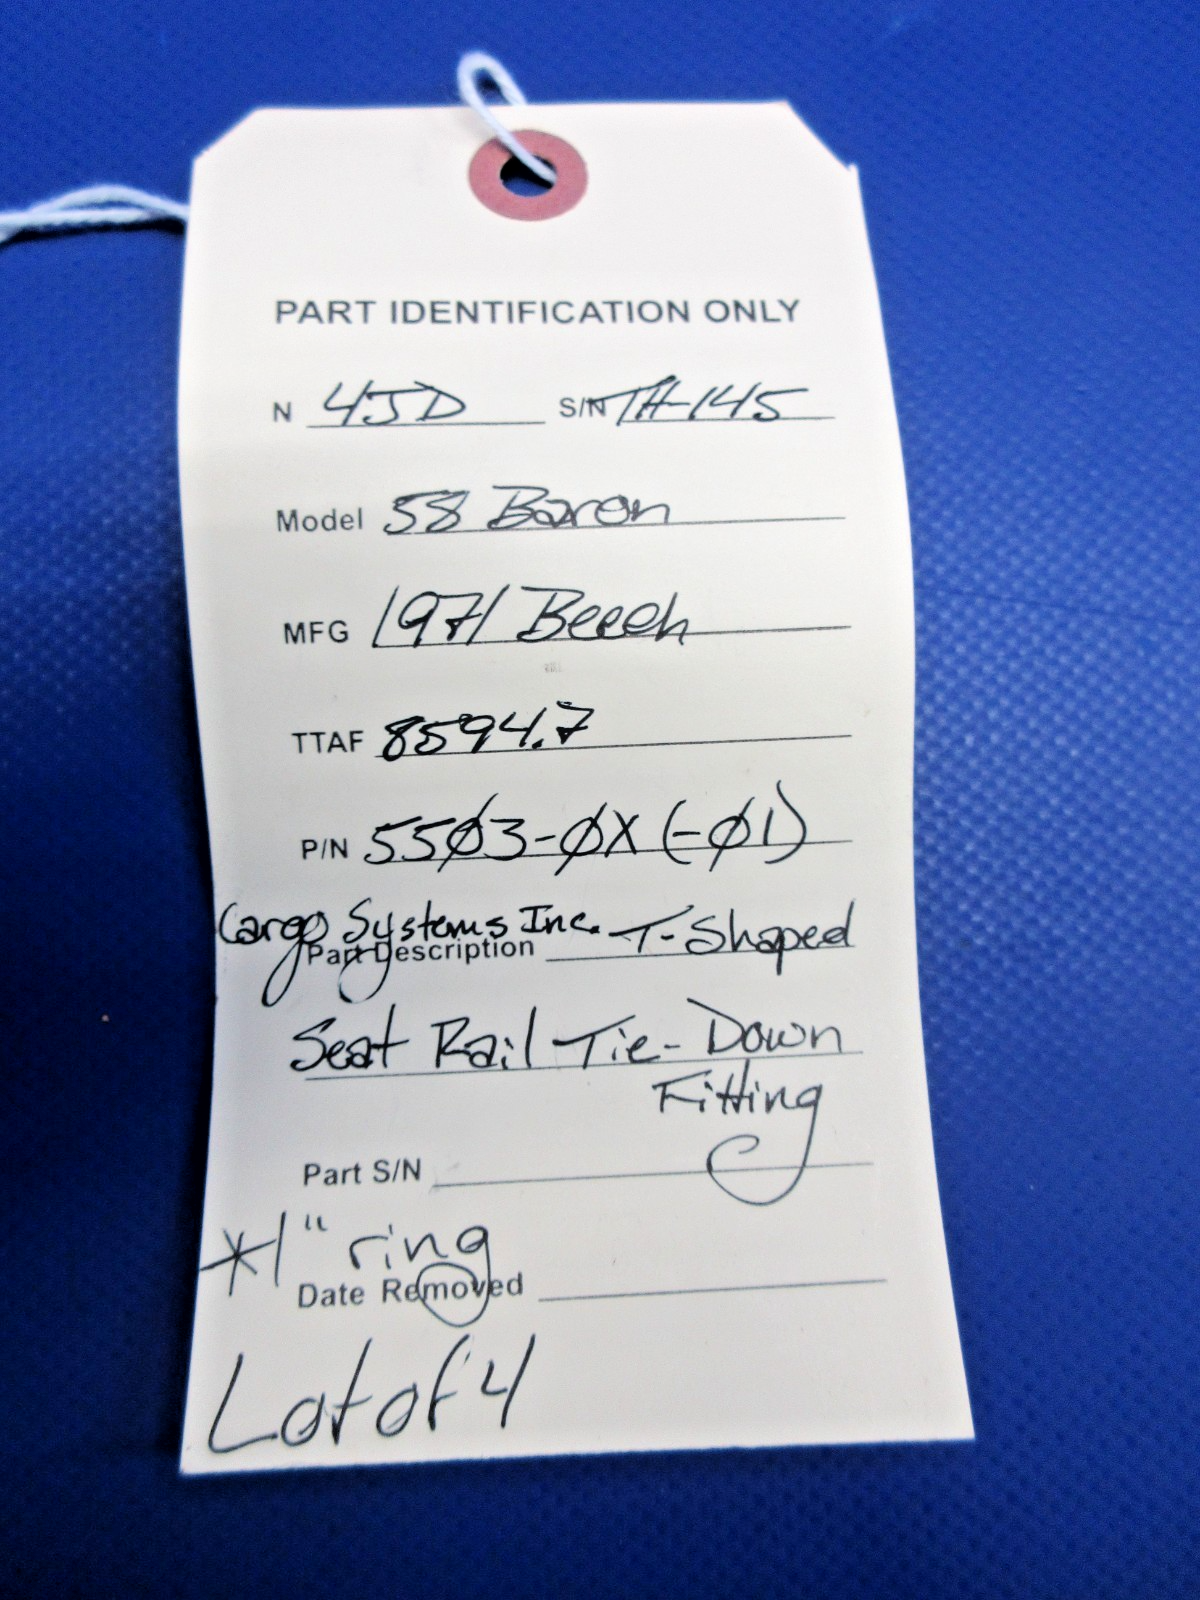 PART IDENTIFICATION ONLY
N 4JD S/N TH-145
Model 58 Baron
MFG 1971 Beech
TTAF 8594.7
P/N 55Ø3-ØX (-Ø1)
Cargo Systems Inc. T-Shaped
Part Description
Seat Rail Tie-Down
Fitting
Part S/N
*1" ring
Date Removed
Lot of 4